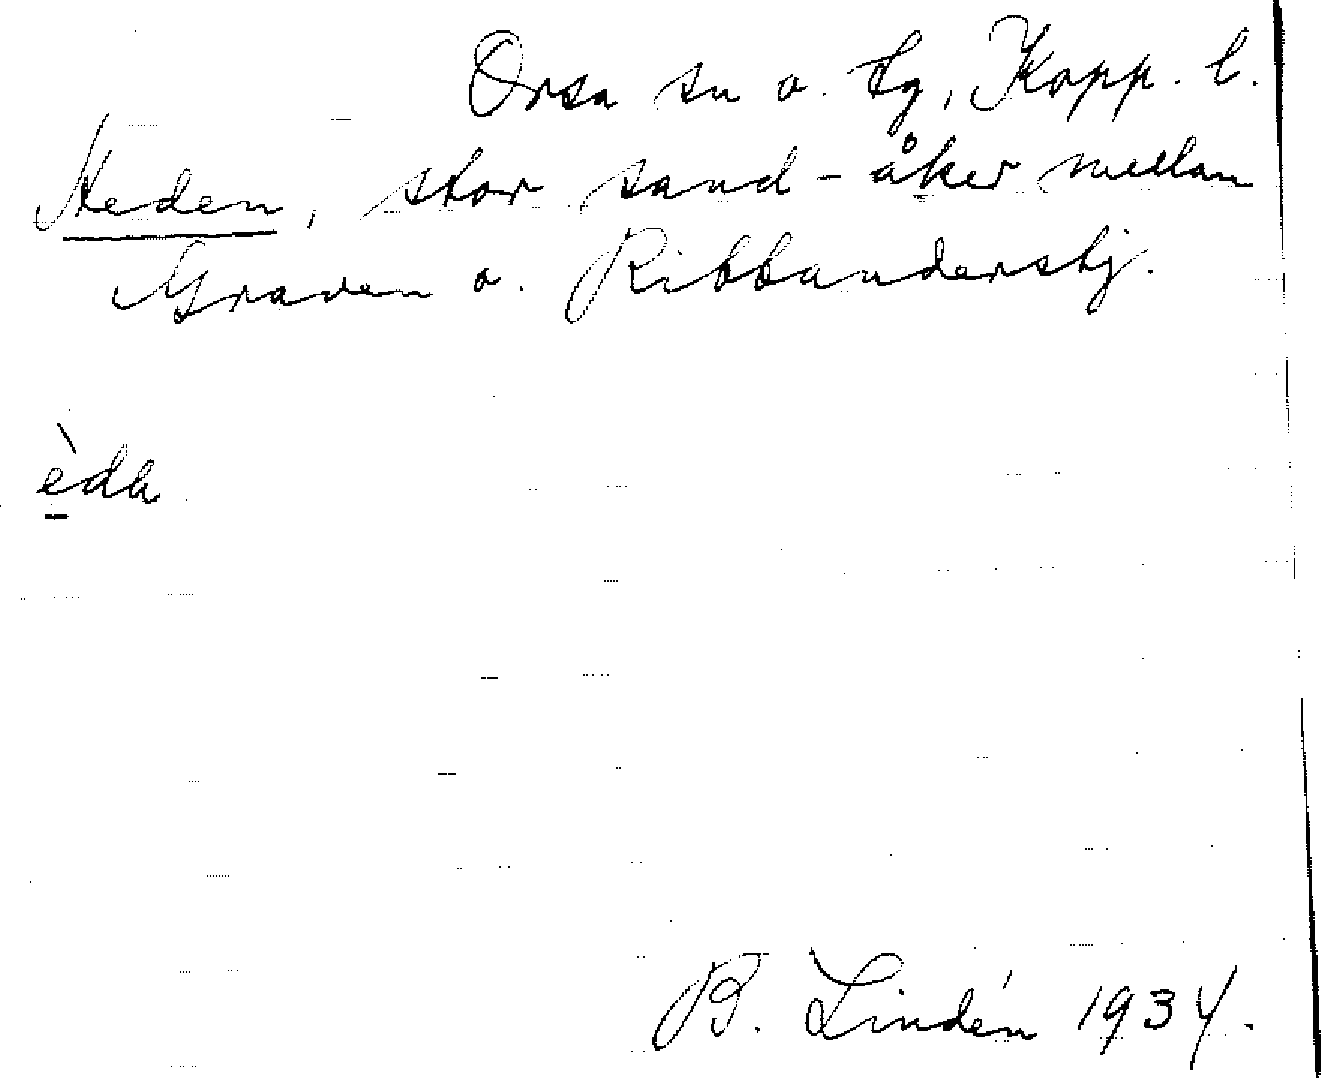 Orsa sn o. tg, Kopp. l.
Heden, stor sand-åker mellan
Graven o. Ribbandersbj.
B. Lindén 1934.